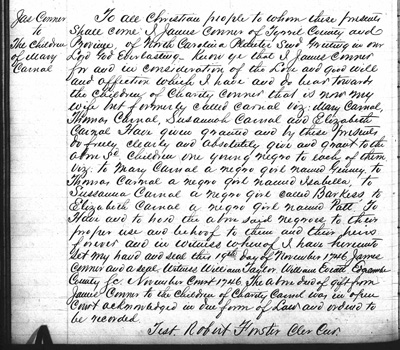 Jas Conner
to
The Children
of Mary
Carnal
To all Christian people to whom these presents
Shall come I James Conner of Tyrrel County and
Province, of North Carolina Planter Send Greeting in our
Lord God Everlasting. Know ye that I James Conner
for and in consideration of the Love and good will
and affection which I have and do bear towards
the Children of Charity Conner that is now my
wife but formerly called Carnal viz: Mary Carnal,
Thomas Carnal, Susannah Carnal and Elizabeth
Carnal Have given granted and by these presents
do freely clearly and absolutely give and grant to the
above Sd. Children one young negro to each of them
viz. to Mary Carnal a negro girl named Jenny, to
Thomas Carnal a negro girl named Isabella, to
Susanna Carnal a negro girl called Barbess to
Elizabeth Carnal a negro girl named Patt To
Have and to hold the above said negroes to their
proper use and behoof to them and their heirs
forever and in witness whereof I have hereunto
set my hand and seal this 19th day of November 1746. James
Conner and a seal. Witness William Taylor. William Edgecombe
County Sc. November Court 1746. The above deed of gift from
James Conner to the Children of Charity Carnal was in open
Court acknowledged in due form of Law and ordered to
be recorded.
Test Robert Forster Cler Cur